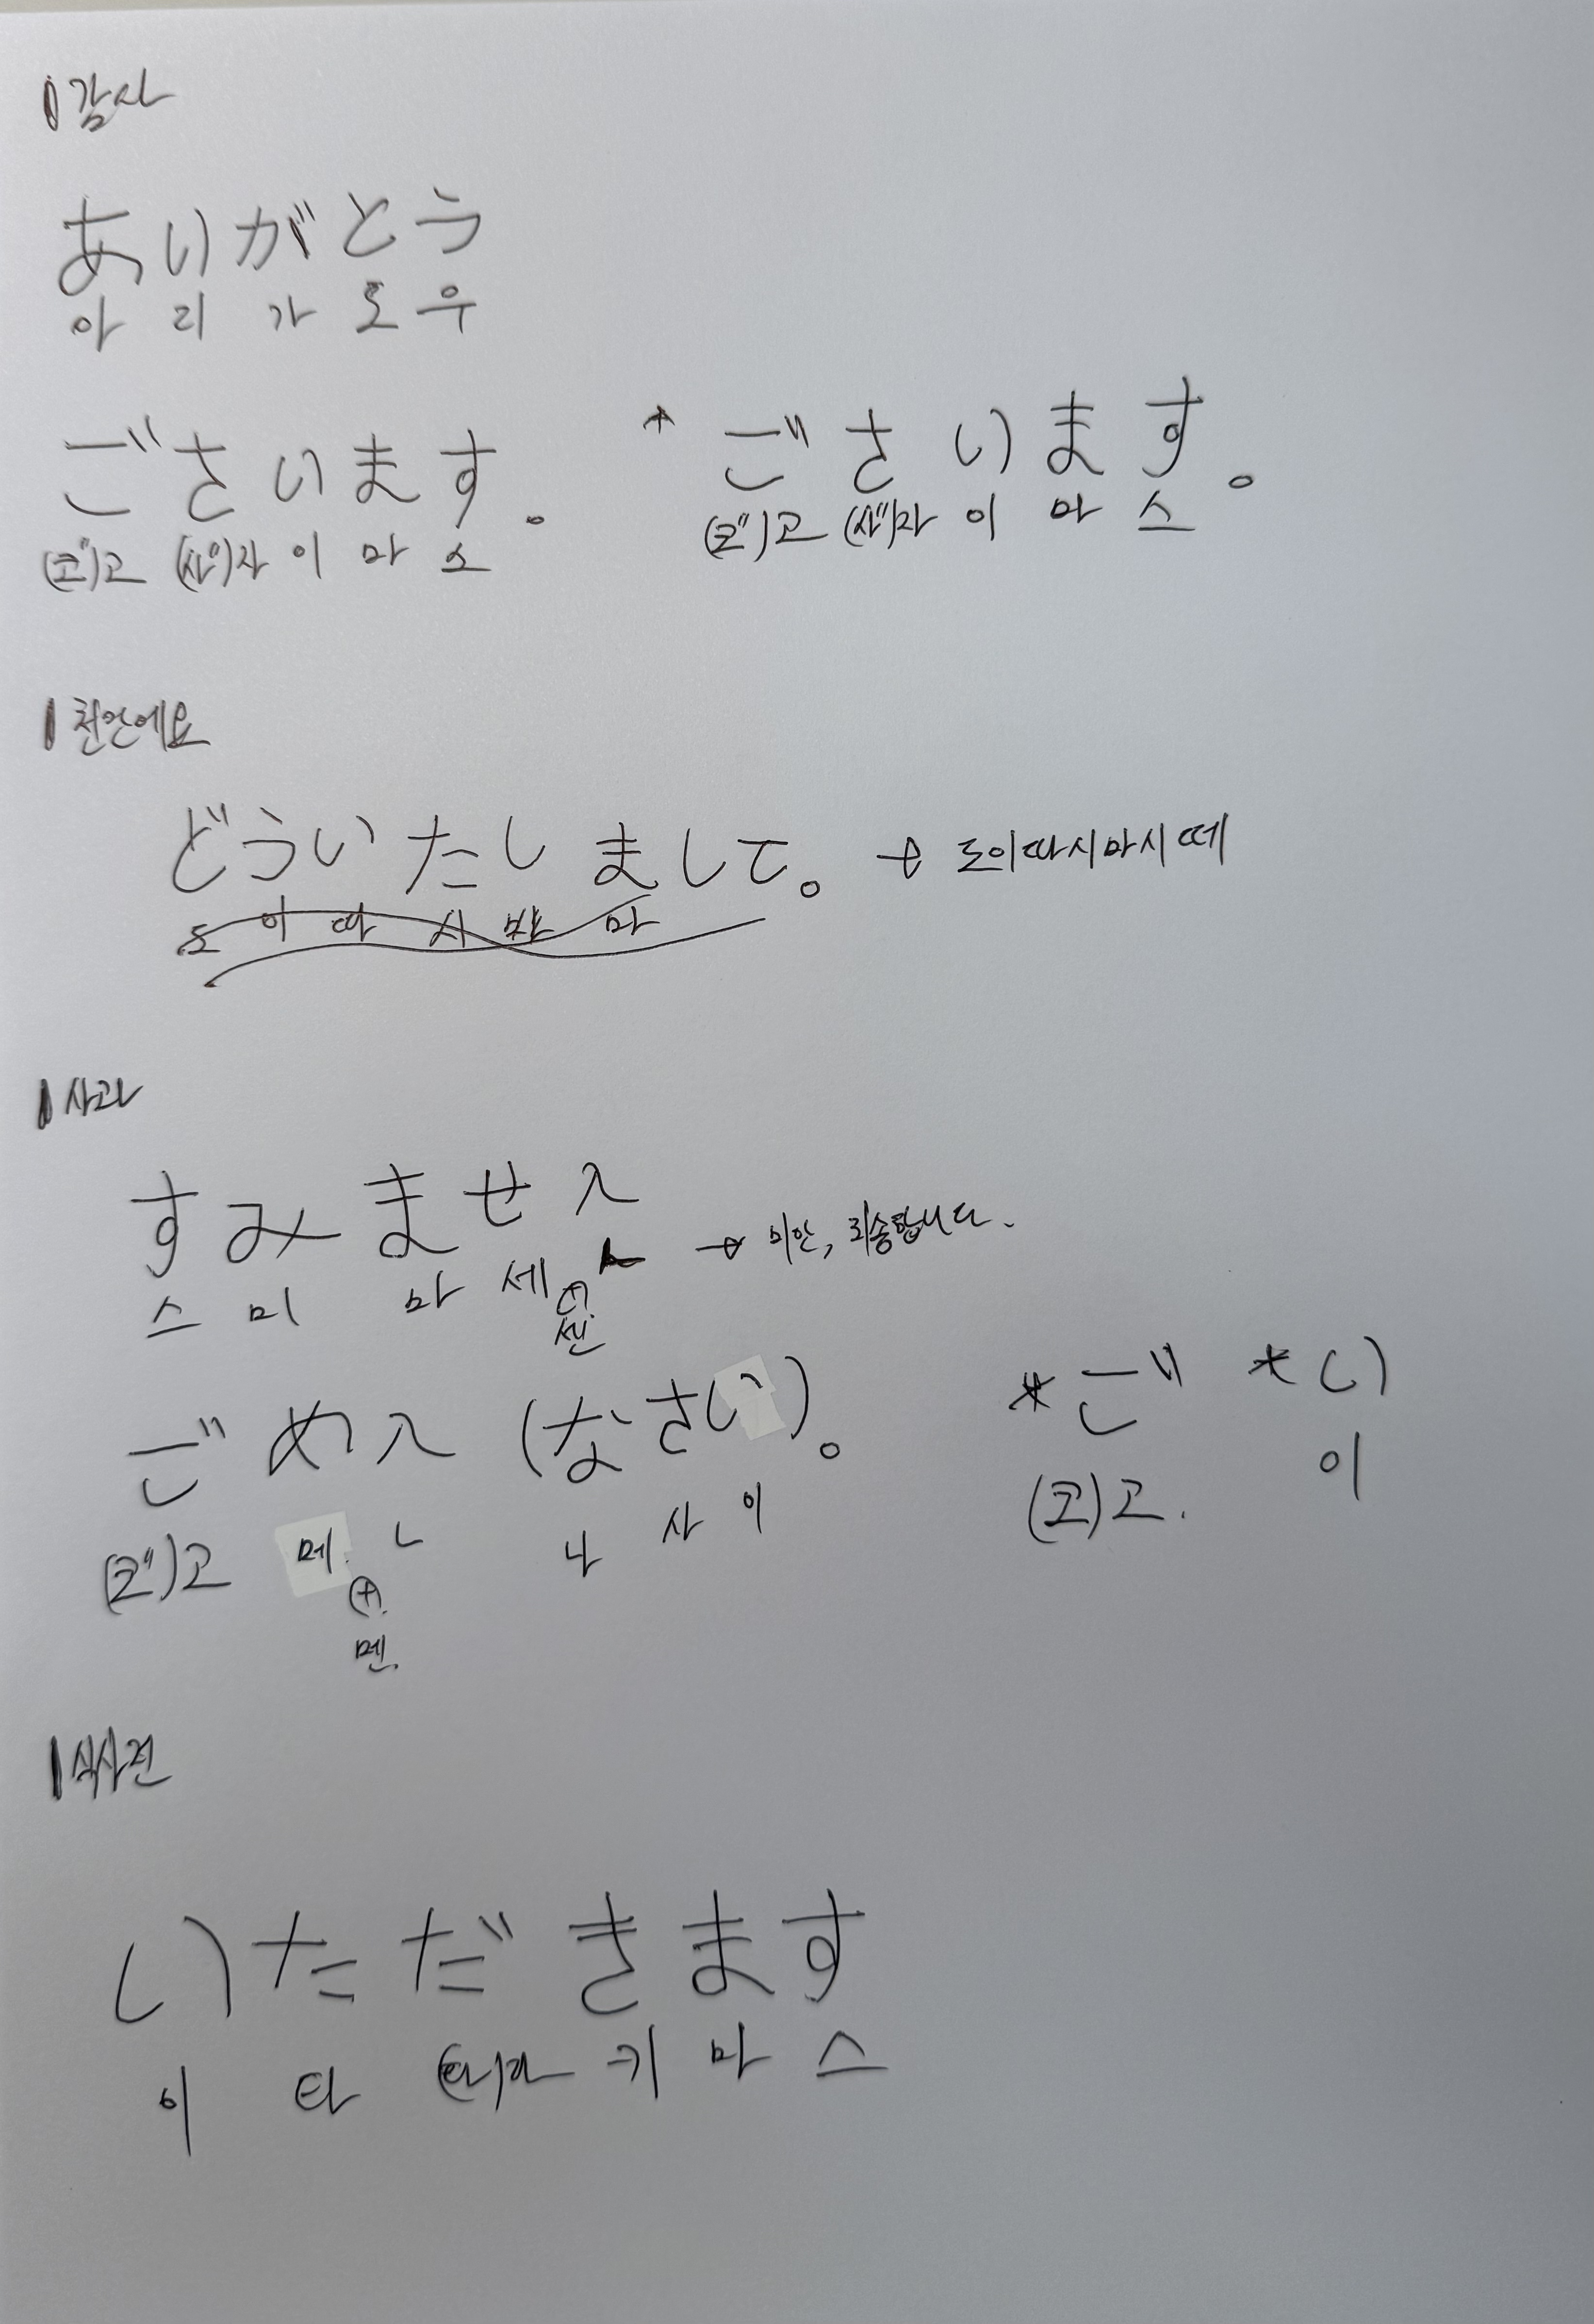 감사
ありがとう
아 리 가 토 우
ごさいます。 * ごさいます。
(코")고 (사")자 이 마 스 (코")고 (사")자 이 마 스
천만에요
どういたしまして。 → 도이따시마시떼
도 이 따 시 마
사과
すみません
스 미 마 세 ㄴ → 미안, 죄송합니다.
(+)
센
ごめん (なさい)。 * ご * い
(코")고 메 ㄴ 나 사 이 (코)고. 이
(+)
멘
식사전
いただきます
이 타 (타)다 키 마 스